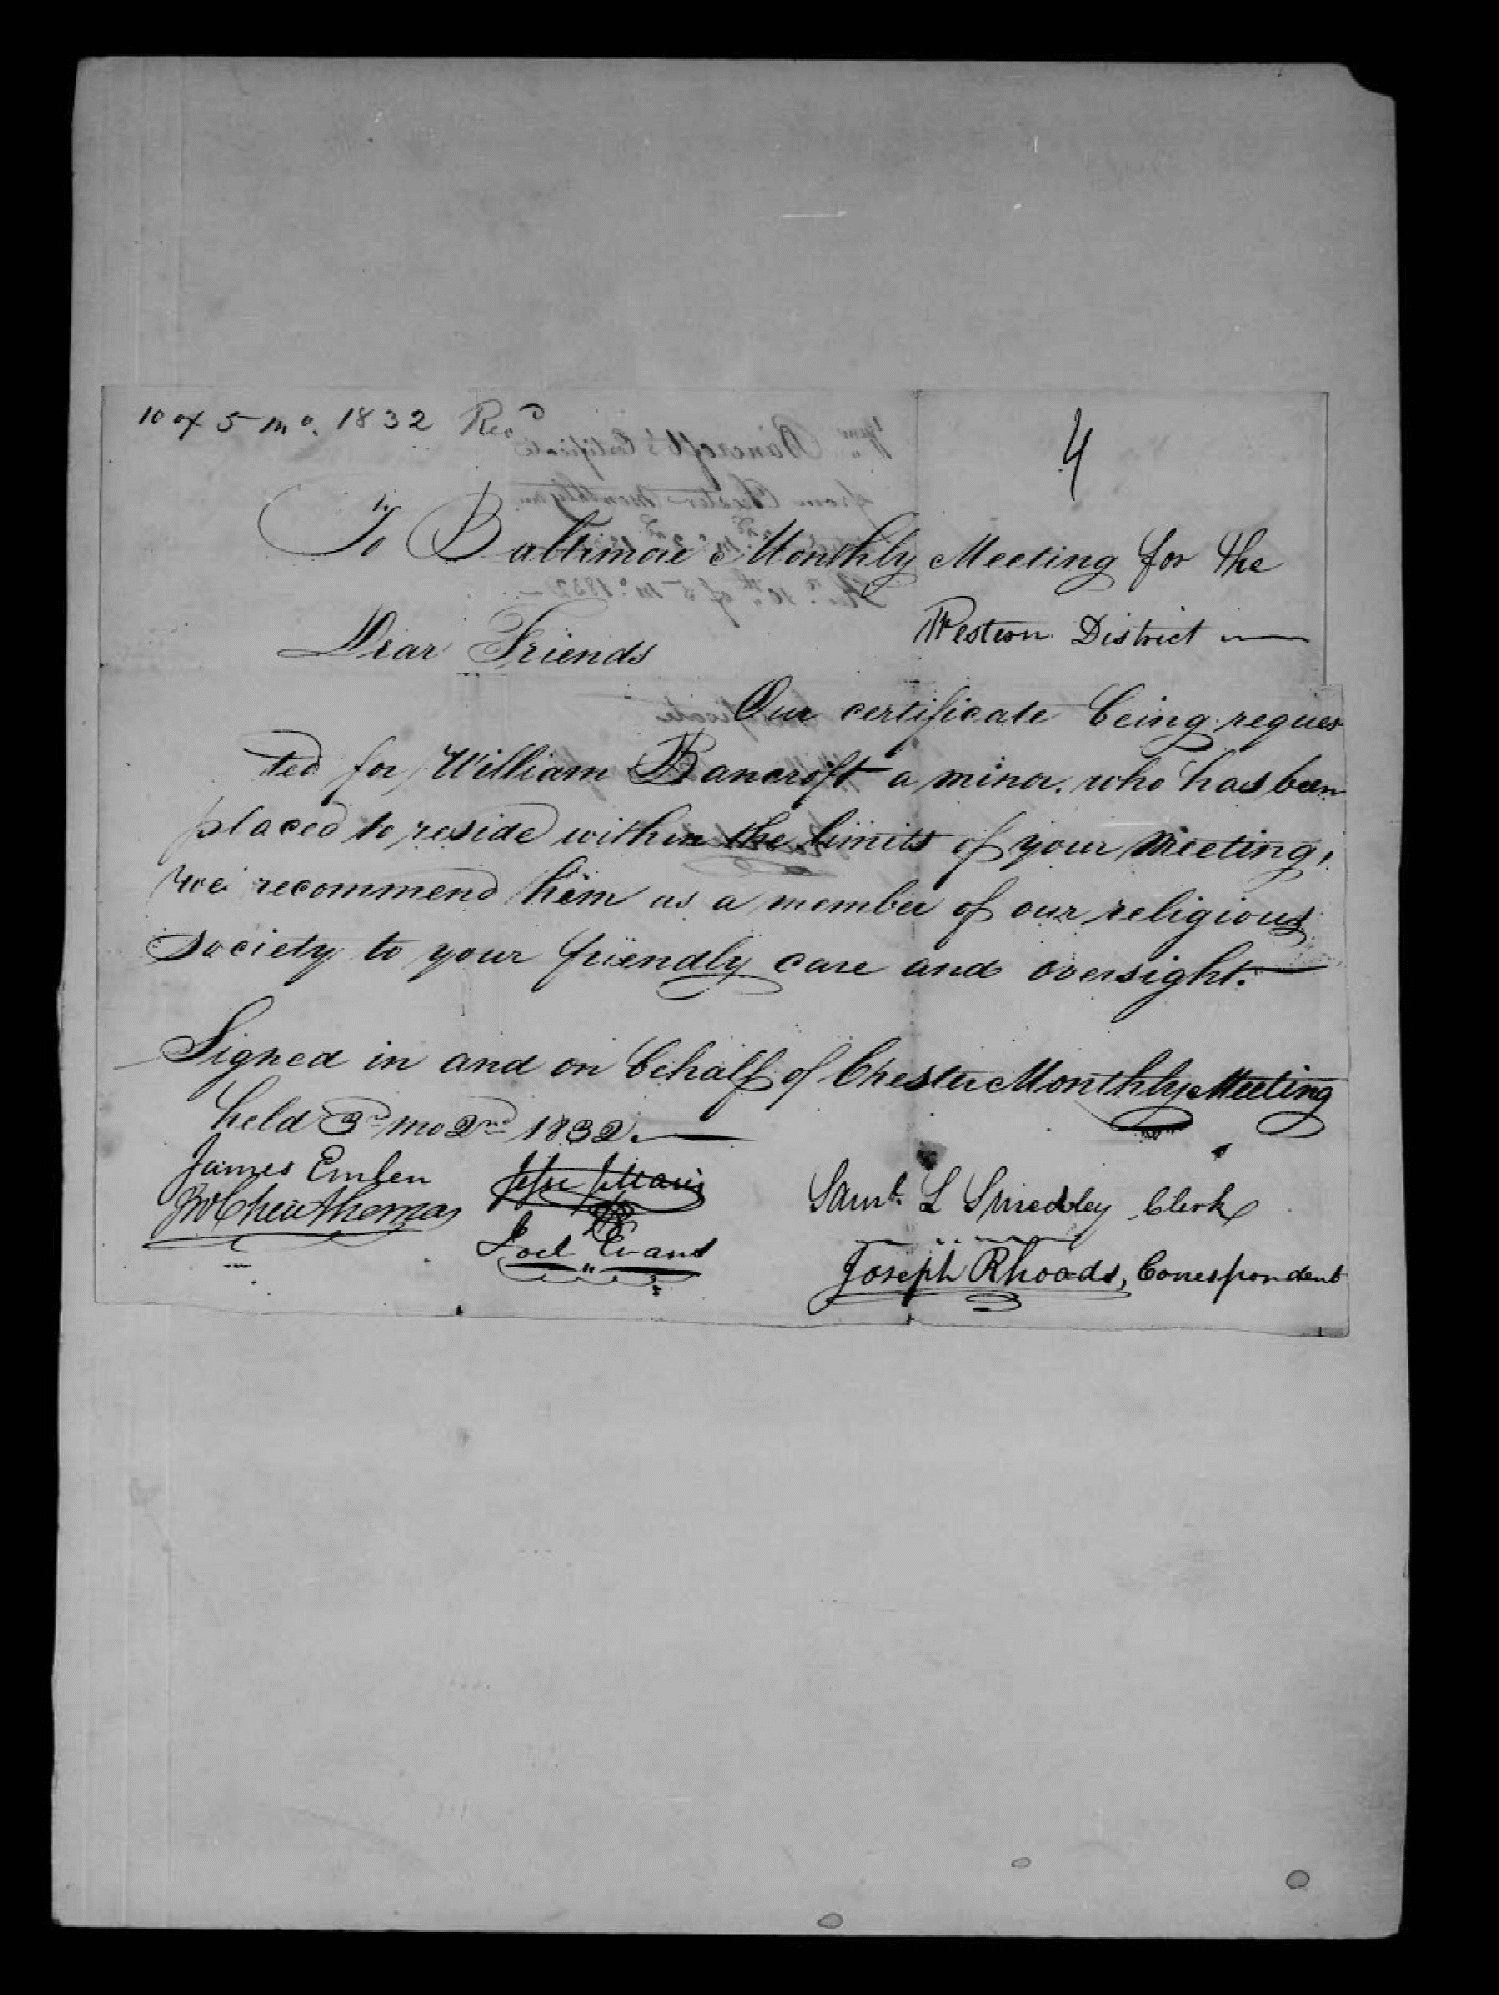 10 of 5 mo. 1832 Recd
4
To Baltimore Monthly Meeting for the
Western District
Dear Friends
Our certificate being reques
ted for William Bancroft a minor, who has been
placed to reside within the limits of your Meeting,
we recommend him as a member of our religious
Society to your friendly care and oversight.
Signed in and on behalf of Chester Monthly Meeting
held 3d mo 2nd 1832.
James Emlen
Jesse J Maris
Saml. L Smedley Clerk
Joel Evans
Joseph Rhoads, Correspondent
Wm. Bancroft's Certificate
from Chester Monthly
10th of 5 mo. 1832